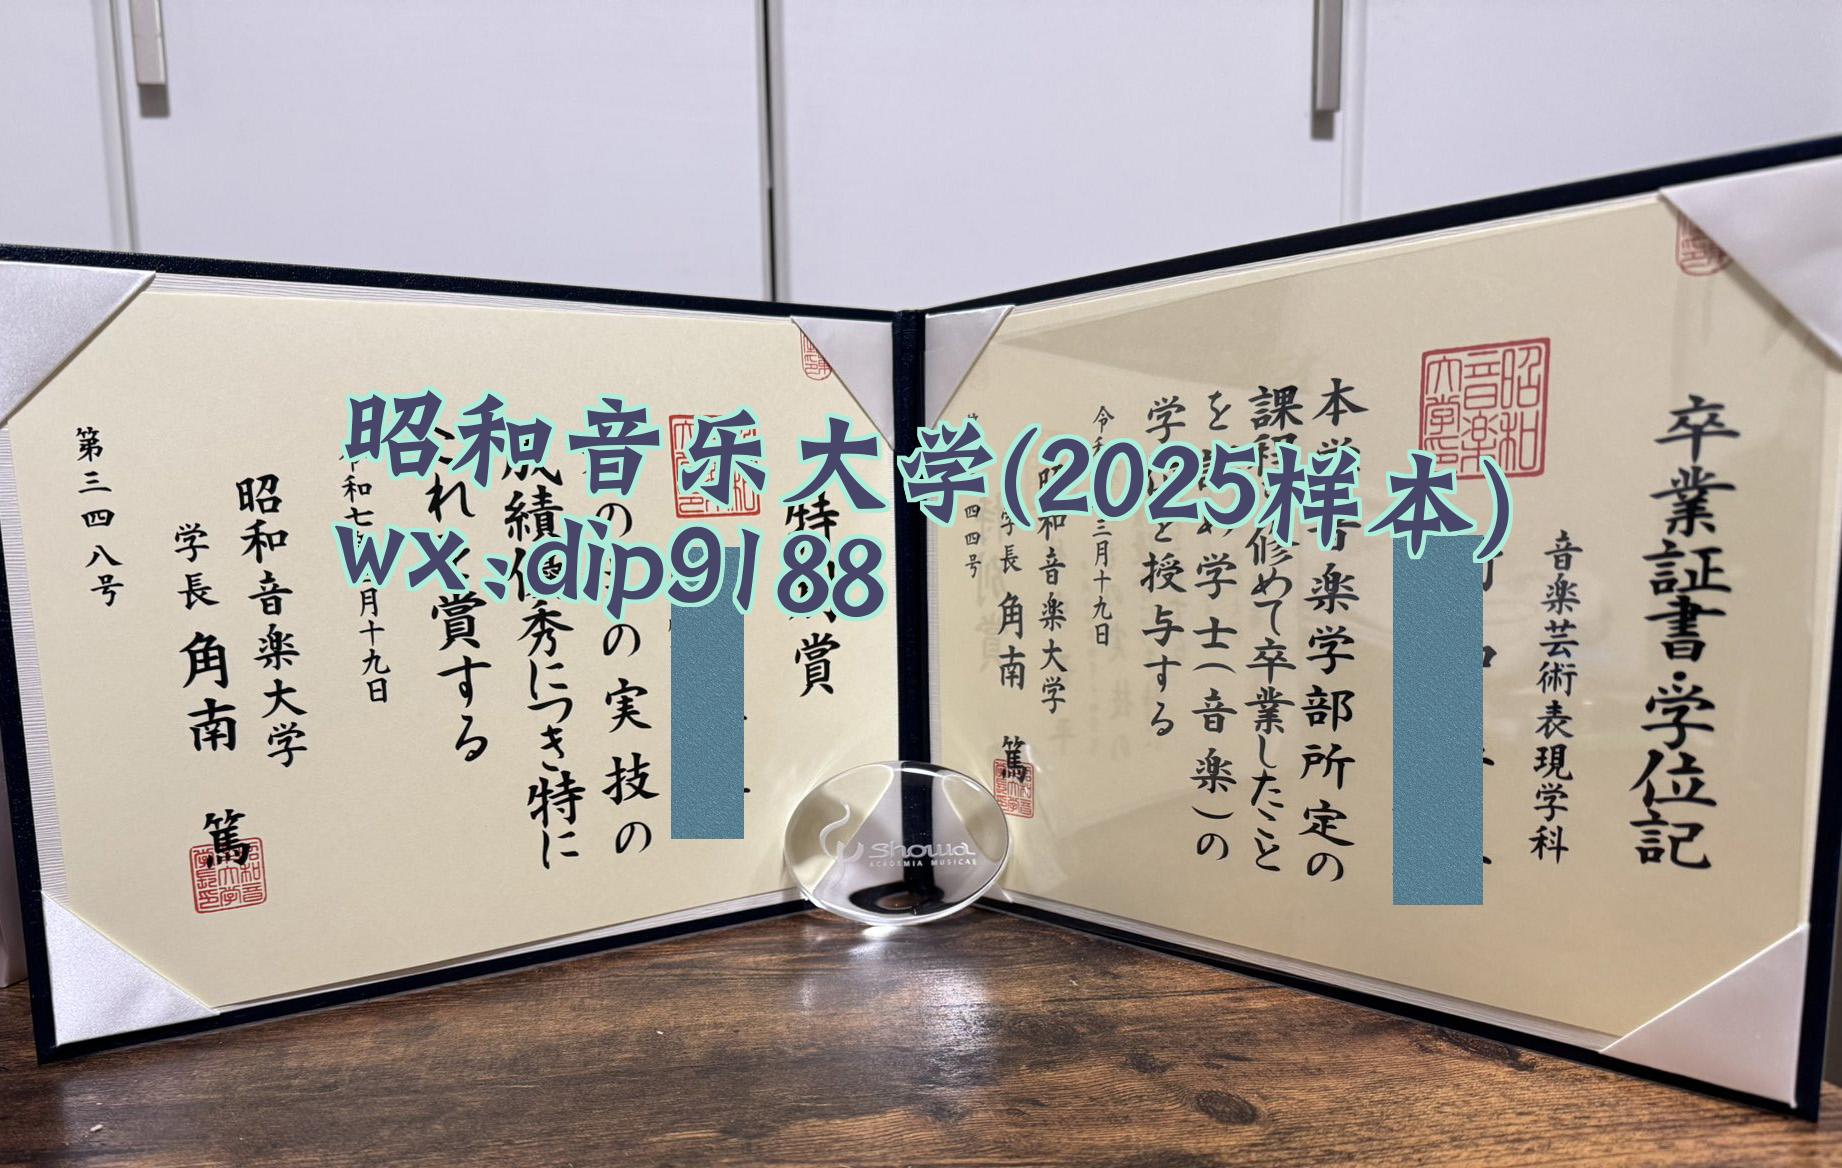 昭和音乐大学(2025样本)
wx:dip9188
卒業証書・学位記
音楽芸術表現学科
昭和
音楽
大学
本学音楽学部所定の
課程を修めて卒業したこと
を認め学士(音楽)の
学位を授与する
三月十九日
昭和音楽大学
学長 角南 篤
四四号
賞
の実技の
成績優秀につき特に
これを賞する
和七 月十九日
昭和音楽大学
学長 角南 篤
第三四八号
Showa
ACADEMIA MUSICAE